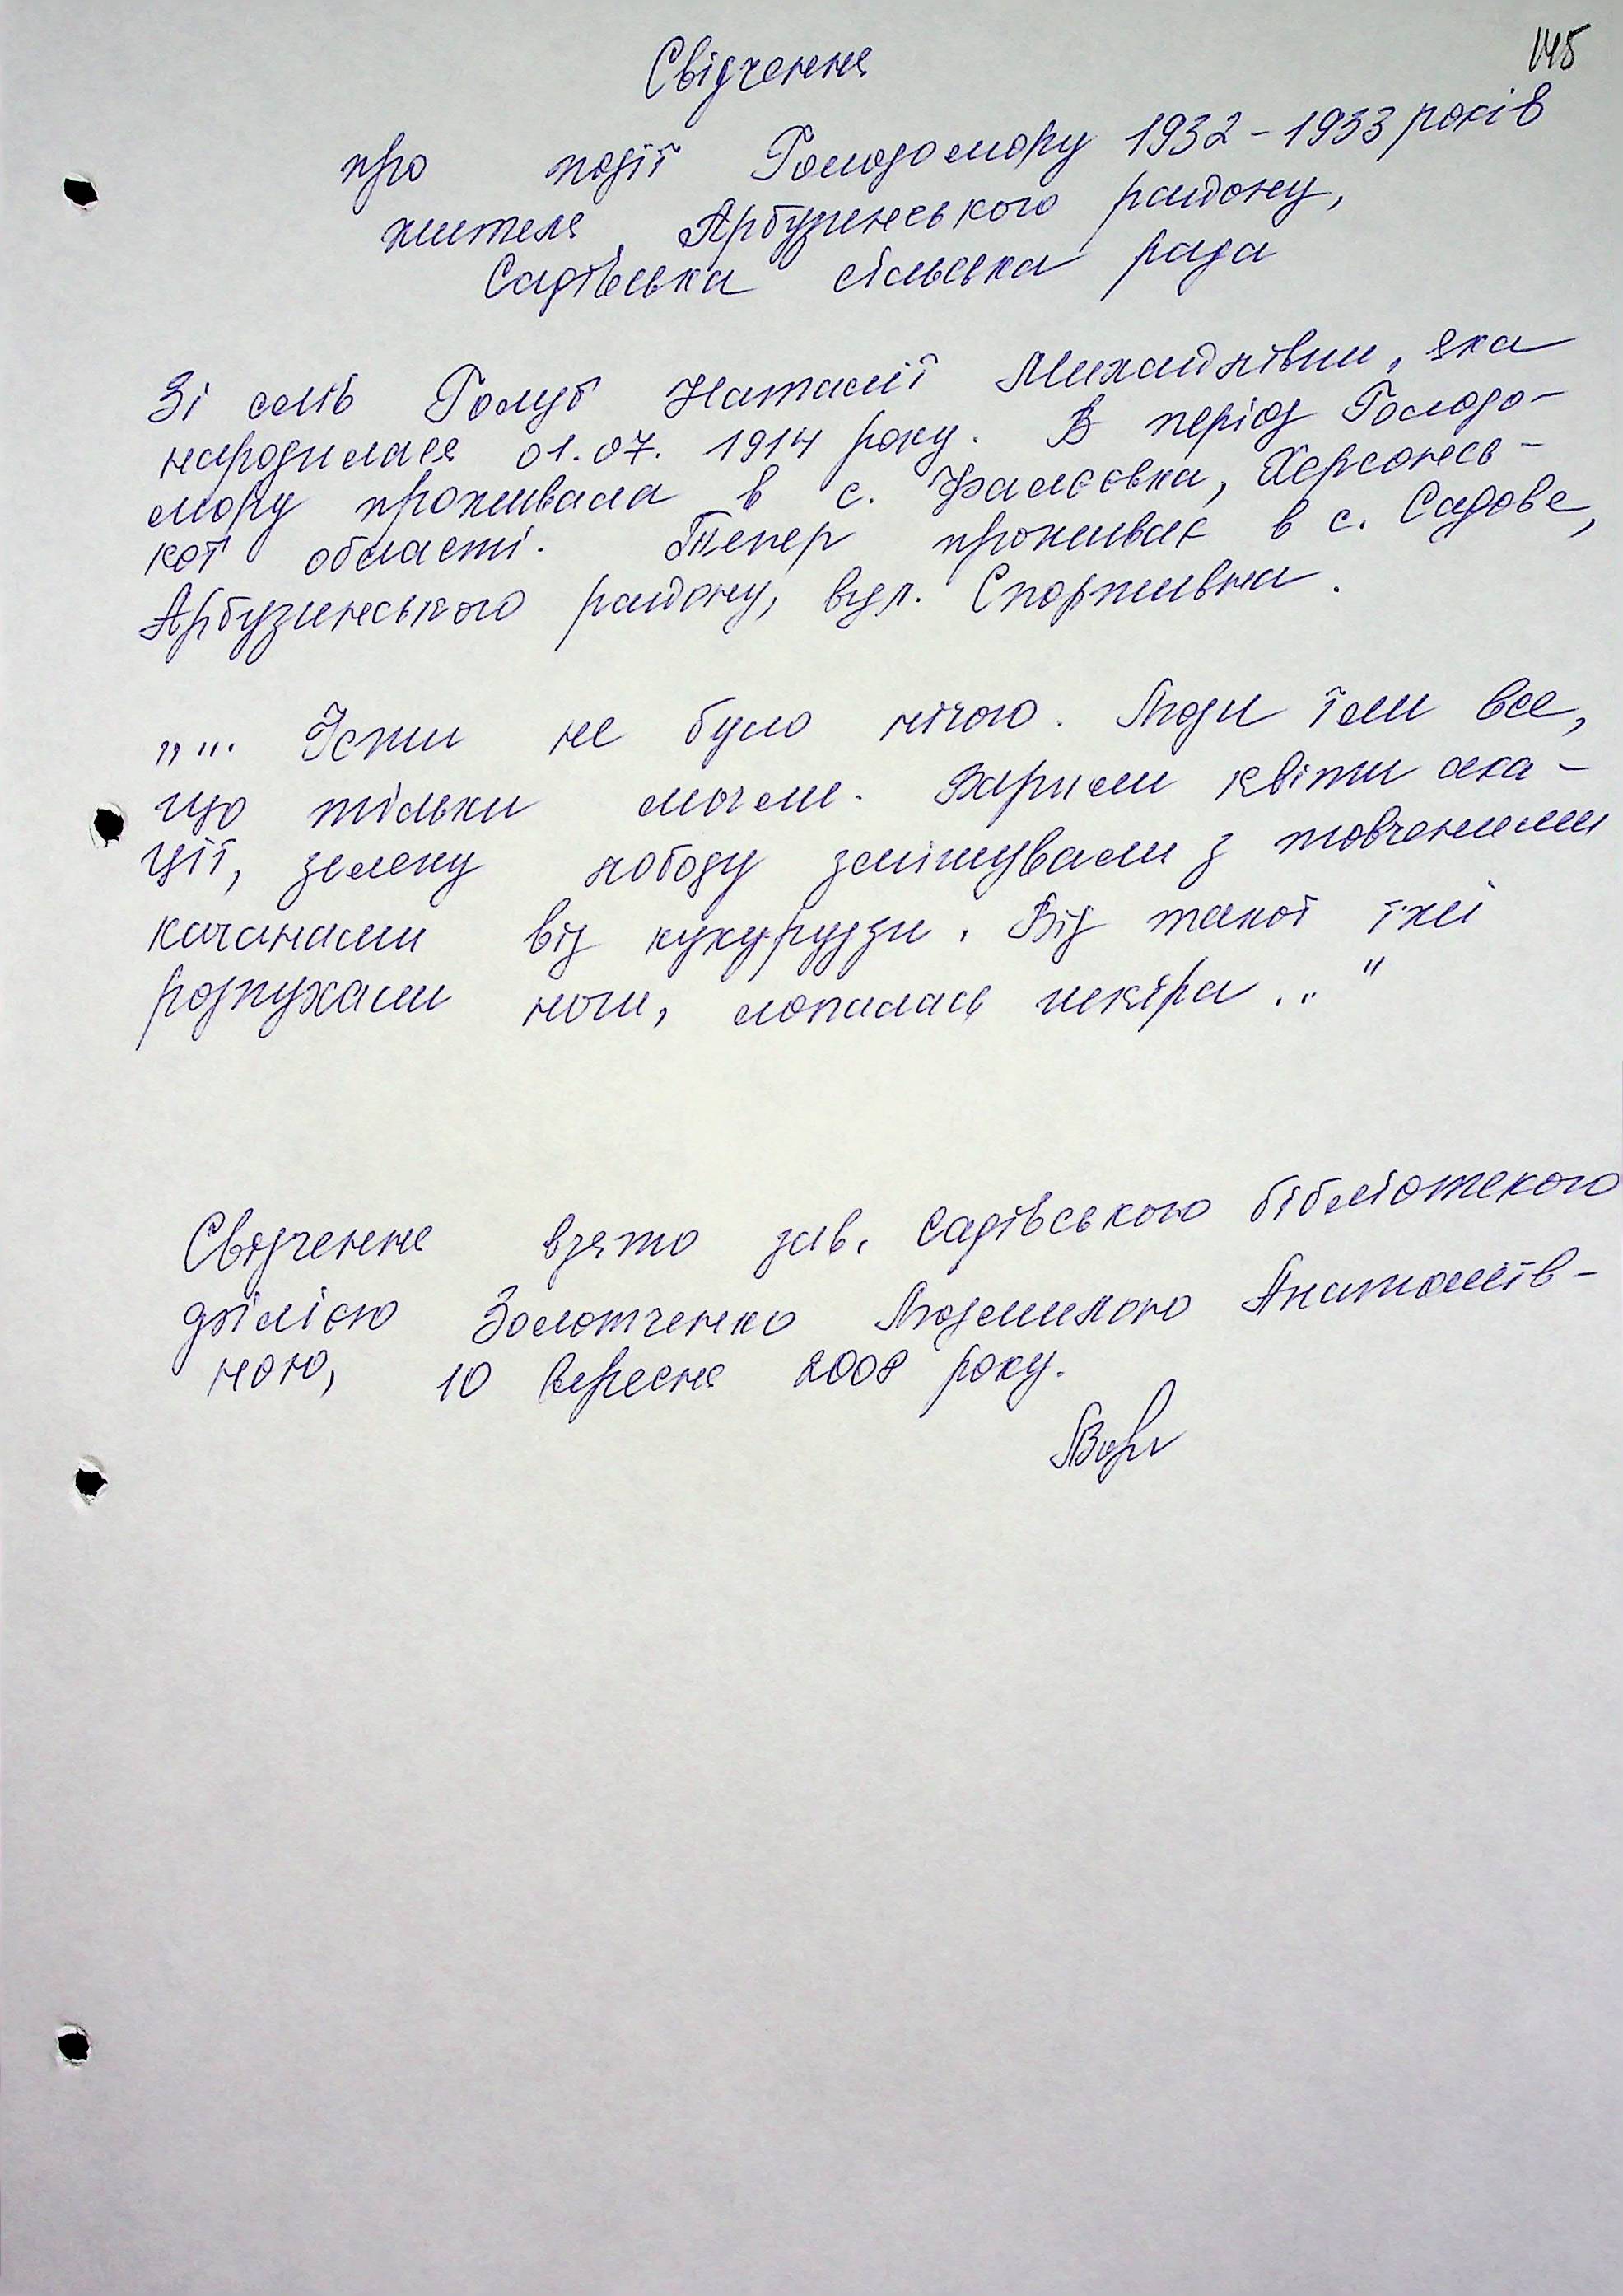 145
Свідчення
про події Голодомору 1932-1933 років
жителя Арбузинського району,
Садівська сільська рада
Зі слів Голуб Наталії Михайлівни, яка
народилася 01.07.1914 року. В період Голодо-
мору проживала в с. Фалєєвка, Херсонсь-
кої області. Тепер проживає в с. Садове,
Арбузинського району, вул. Спортивна.
„... Їсти не було нічого. Люди їли все,
що тільки могли. Варили квіти ака-
ції, зелену лободу змішували з товченими
качанами від кукурудзи. Від такої їжі
розпухали ноги, лопалась шкіра..."
Свідчення взято зав. Садівського бібліотекою
філією Золотченко Людмилою Анатоліїв-
ною, 10 вересня 2008 року.